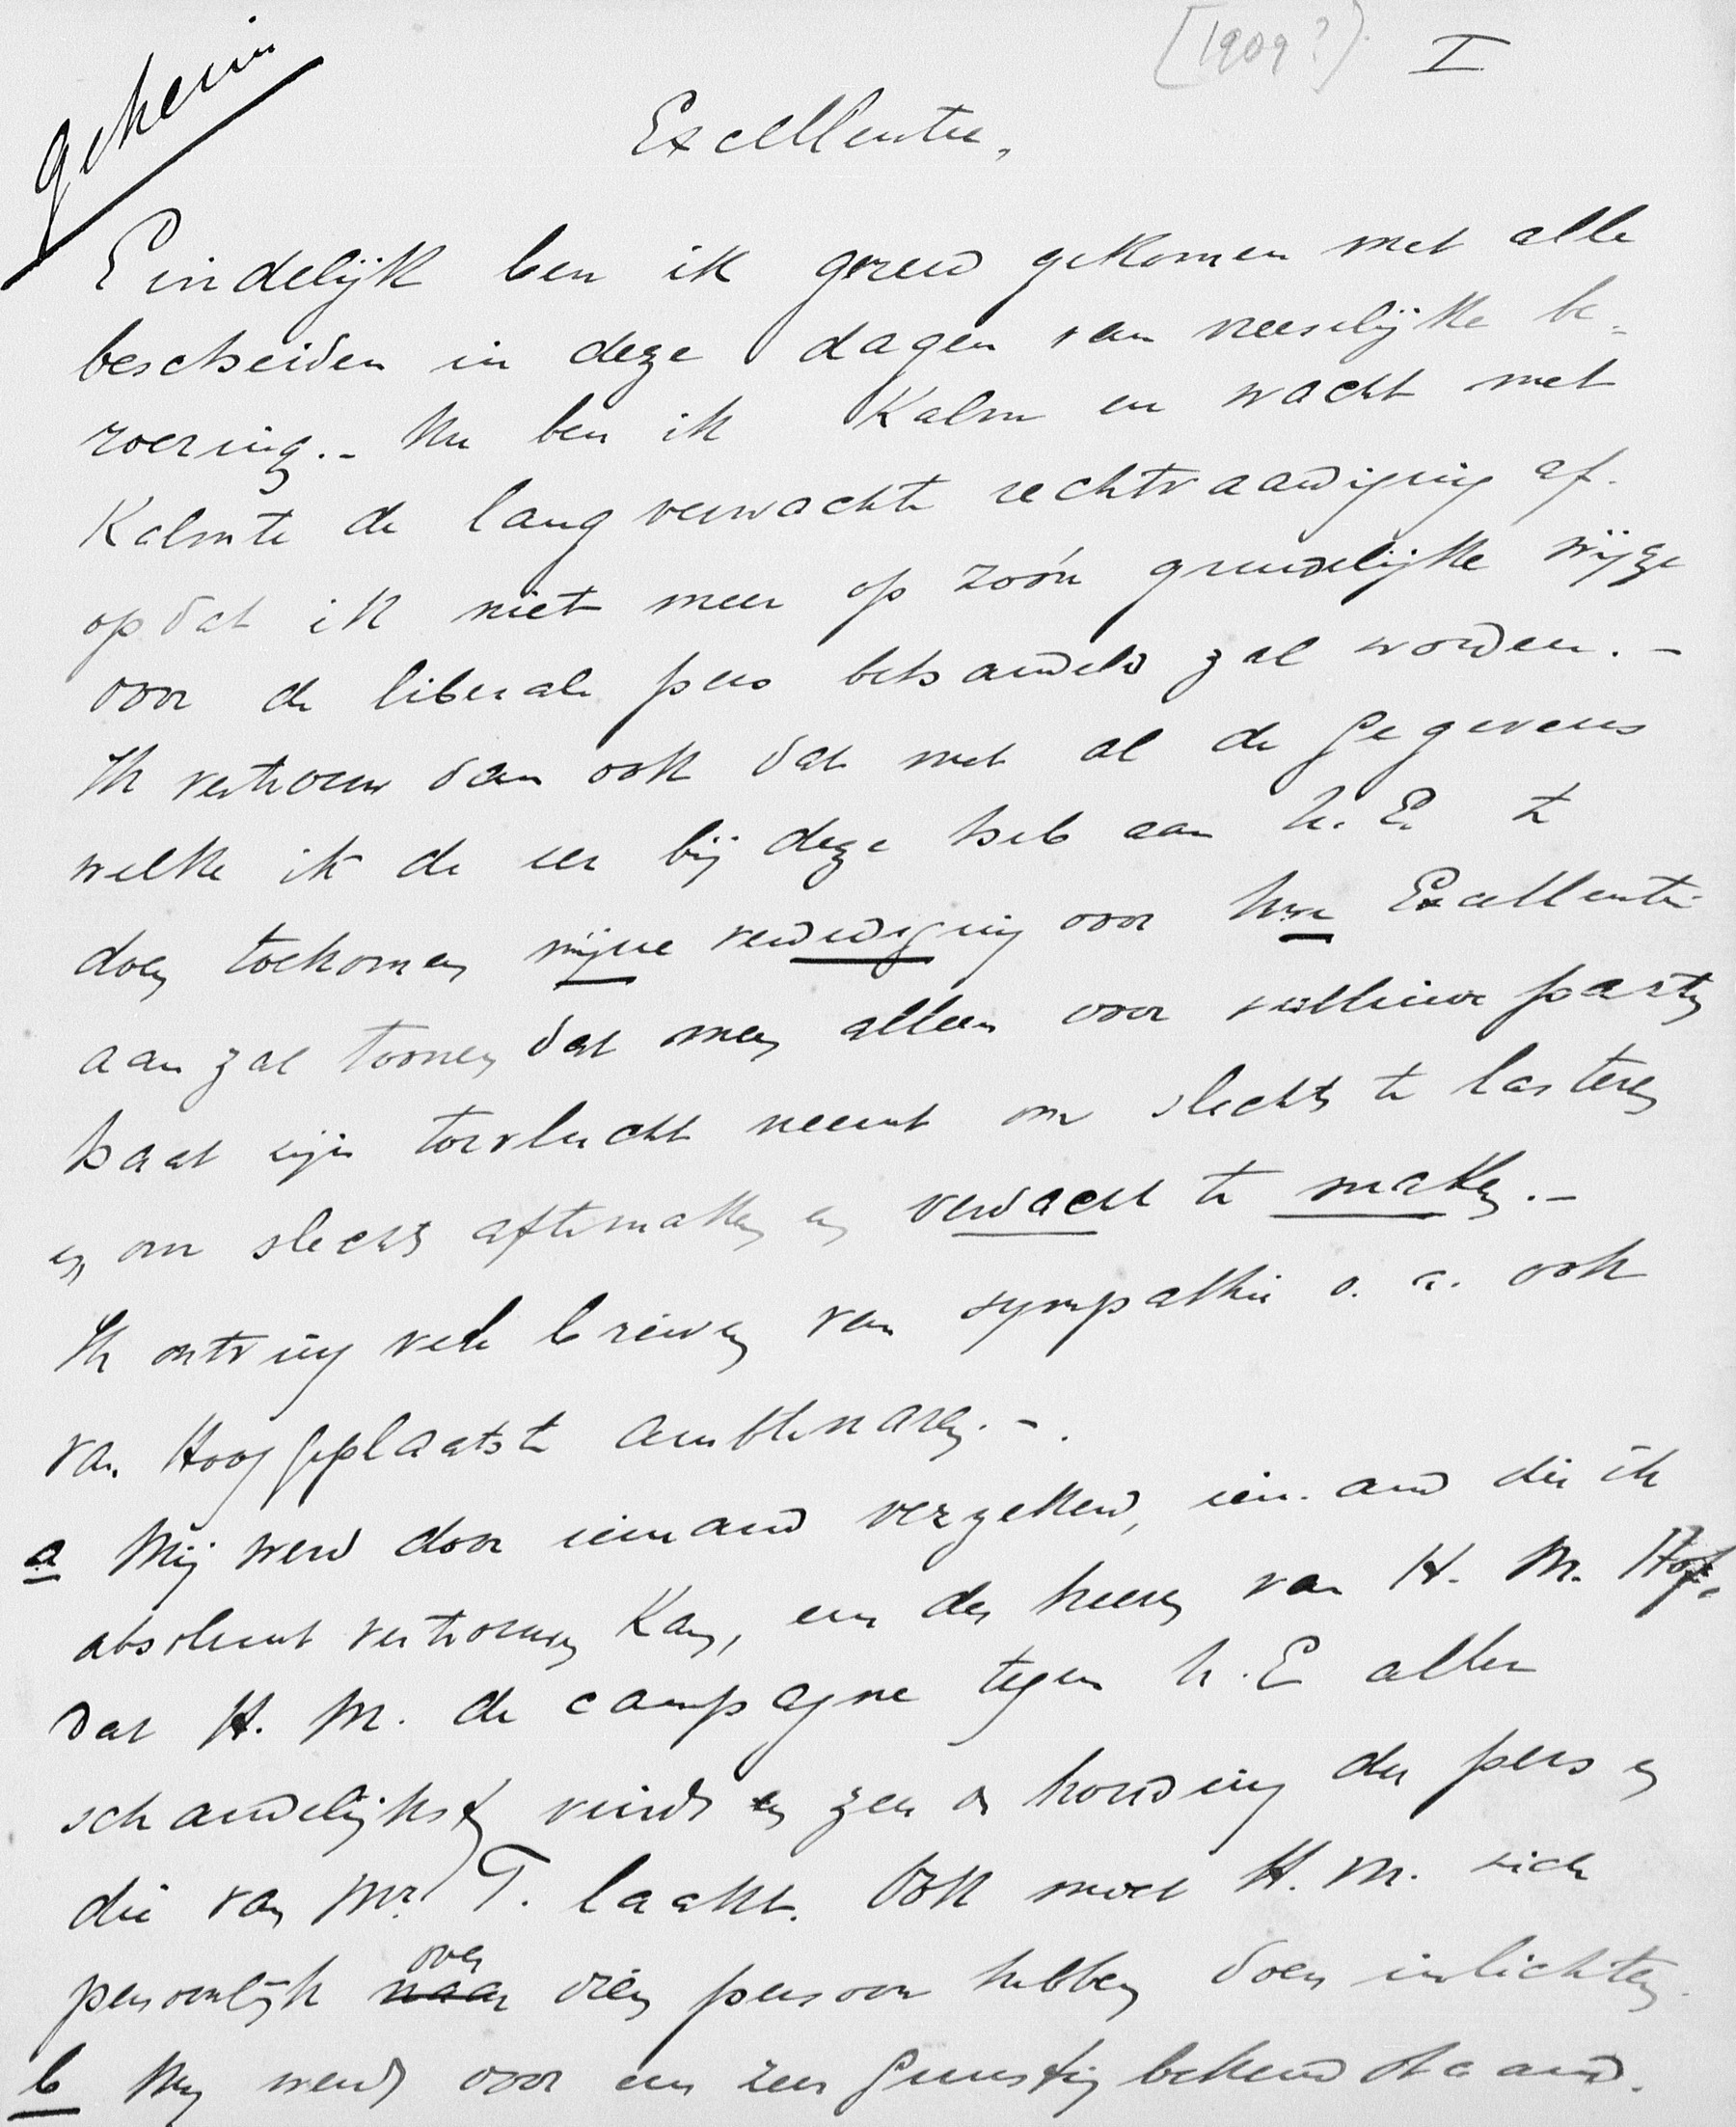 [1909?] I
Geheim
Excellentie,
Eindelijk ben ik gereed gekomen met alle
bescheiden in deze dagen van vreeselijke be-
roering.- Nu ben ik kalm en wacht met
kalmte de lang verwachte rechtvaardiging af.
opdat ik niet meer op zóó'n gruwelijke wijze
door de liberale pers behandeld zal worden.-
Ik vertrouw dan ook dat met al de gegevens
welke ik de eer bij deze heb aan U.E. te
doen toekomen mijne verdediging door Uwe Excellentie
aan zal toonen dat men alleen door publieke partij
haat zijn toevlucht neemt om slechts te lasteren
en om slechts aftemaken en verdacht te maken.-
Ik ontving vele brieven van sympathie o.a. ook
van Hooggeplaatste ambtenaren.-.
a Mij werd door iemand verzekerd, iemand die ik
absoluut vertrouwen kan, een der heeren van H.M. Hof,
dat H.M. de campagne tegen U.E aller
schandelijkst vindt en zeer de houding der pers en
die van Mr. T. laakt. Ook moet H.M. zich
persoonlijk naar over dien persoon hebben doen inlichten.
b Mij werd door een zeer gunstig bekend staand.